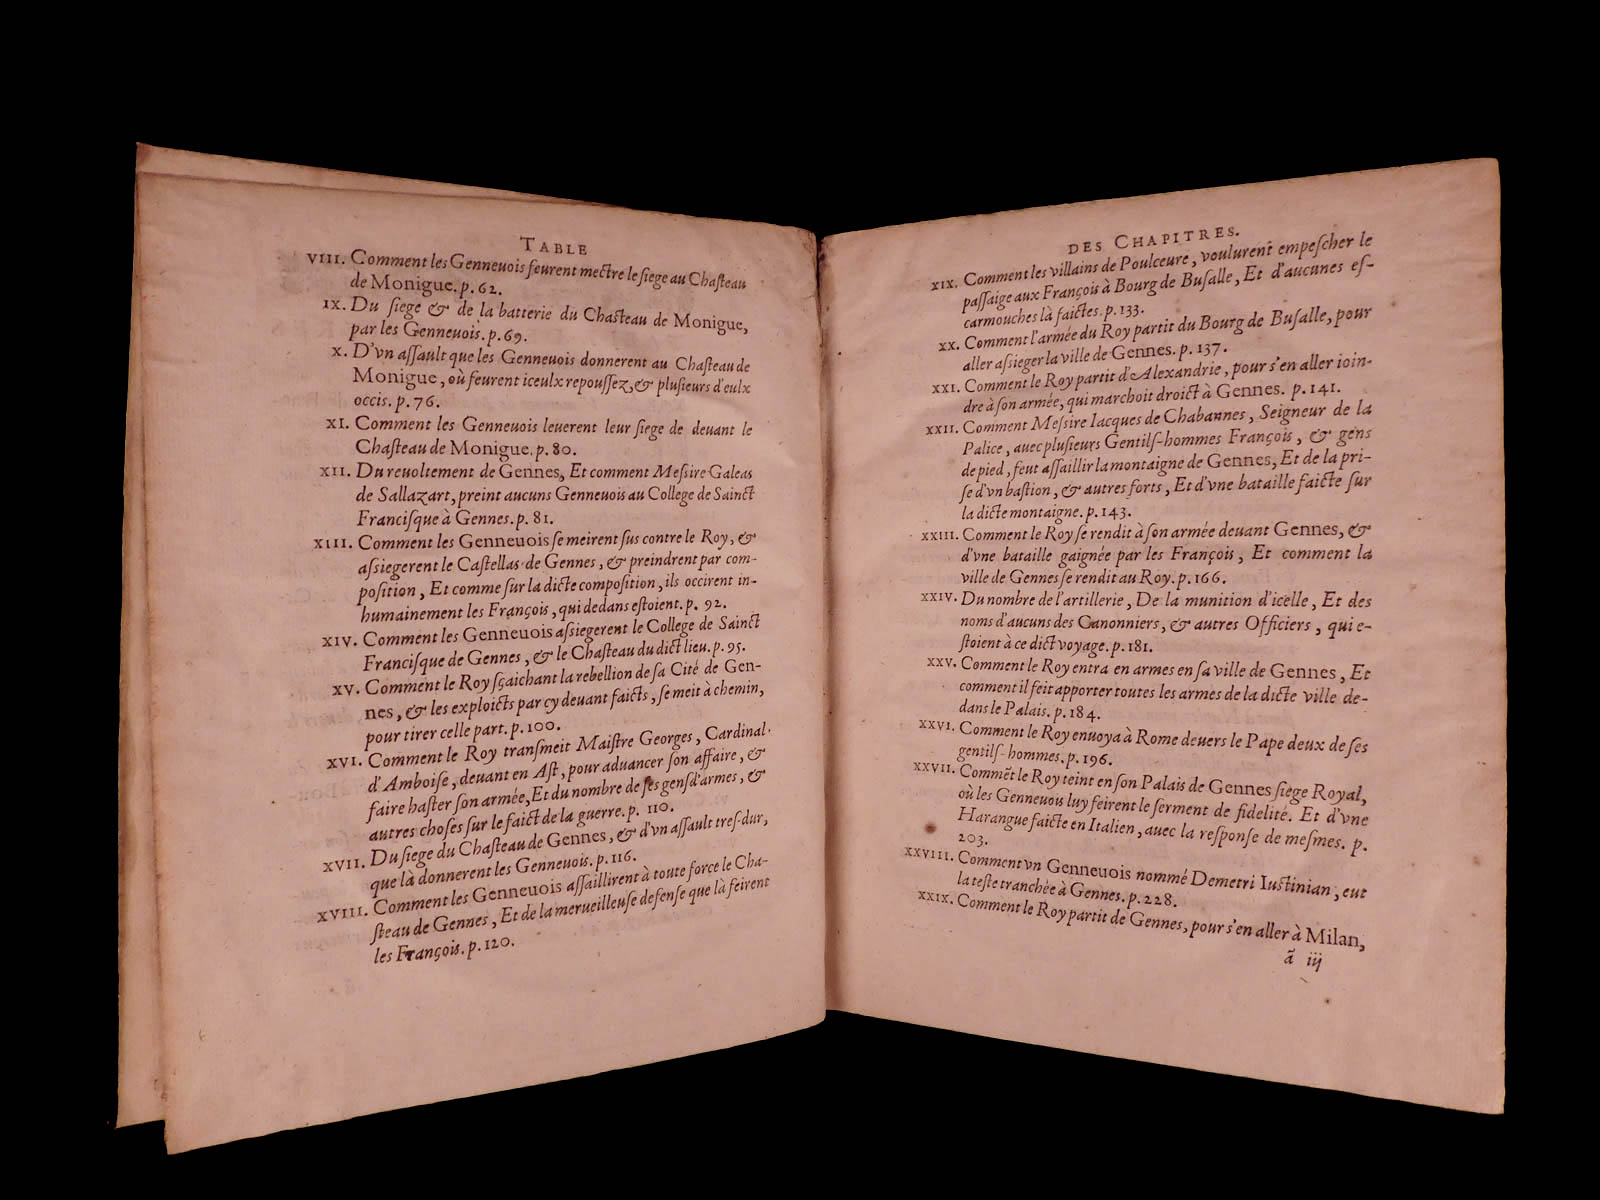 TABLE
VIII. Comment les Genneuois feurent mectre le siege au Chasteau
de Monigue. p. 62.
IX. Du siege & de la batterie du Chasteau de Monigue,
par les Genneuois. p. 69.
X. D'vn assault que les Genneuois donnerent au Chasteau de
Monigue, où feurent iceulx repoussez, & plusieurs d'eulx
occis. p. 76.
XI. Comment les Genneuois leuerent leur siege de deuant le
Chasteau de Monigue. p. 80.
XII. Du reuoltement de Gennes, Et comment Messire Galeas
de Sallazart, preint aucuns Genneuois au College de Sainct
Francisque à Gennes. p. 81.
XIII. Comment les Genneuois se meirent sus contre le Roy, &
assiegerent le Castellas de Gennes, & preindrent par com-
position, Et comme sur la dicte composition, ils occirent in-
humainement les François, qui dedans estoient. p. 92.
XIV. Comment les Genneuois assiegerent le College de Sainct
Francisque de Gennes, & le Chasteau du dict lieu. p. 95.
XV. Comment le Roy sçaichant la rebellion de sa Cité de Gen-
nes, & les exploicts par cy deuant faicts, se meit à chemin,
pour tirer celle part. p. 100.
XVI. Comment le Roy transmeit Maistre Georges, Cardinal
d'Amboise, deuant en Ast, pour aduancer son affaire, &
faire haster son armée, Et du nombre de ses gensd'armes, &
autres choses sur le faict de la guerre. p. 110.
XVII. Du siege du Chasteau de Gennes, & d'vn assault tres-dur,
que là donnerent les Genneuois. p. 116.
XVIII. Comment les Genneuois assaillirent à toute force le Cha-
steau de Gennes, Et de la merueilleuse defense que là feirent
les François. p. 120.
DES CHAPITRES.
XIX. Comment les villains de Poulceure, voulurent empescher le
passaige aux François à Bourg de Busalle, Et d'aucunes es-
carmouches là faictes. p. 133.
XX. Comment l'armée du Roy partit du Bourg de Busalle, pour
aller assieger la ville de Gennes. p. 137.
XXI. Comment le Roy partit d'Alexandrie, pour s'en aller ioin-
dre à son armée, qui marchoit droict à Gennes. p. 141.
XXII. Comment Messire Iacques de Chabannes, Seigneur de la
Palice, auec plusieurs Gentils-hommes François, & gens
de pied, feut assaillir la montaigne de Gennes, Et de la pri-
se d'vn bastion, & autres forts, Et d'vne bataille faicte sur
la dicte montaigne. p. 143.
XXIII. Comment le Roy se rendit à son armée deuant Gennes, &
d'vne bataille gaignée par les François, Et comment la
ville de Gennes se rendit au Roy. p. 166.
XXIV. Du nombre de l'artillerie, De la munition d'icelle, Et des
noms d'aucuns des Canonniers, & autres Officiers, qui e-
stoient à ce dict voyage. p. 181.
XXV. Comment le Roy entra en armes en sa ville de Gennes, Et
comment il feit apporter toutes les armes de la dicte ville de-
dans le Palais. p. 184.
XXVI. Comment le Roy enuoya à Rome deuers le Pape deux de ses
gentils-hommes. p. 196.
XXVII. Commẽt le Roy teint en son Palais de Gennes siege Royal,
où les Genneuois luy feirent le serment de fidelité. Et d'vne
Harangue faicte en Italien, auec la response de mesmes. p.
203.
XXVIII. Comment vn Genneuois nommé Demetri Iustinian, eut
la teste tranchée à Gennes. p. 228.
XXIX. Comment le Roy partit de Gennes, pour s'en aller à Milan,
ã iij